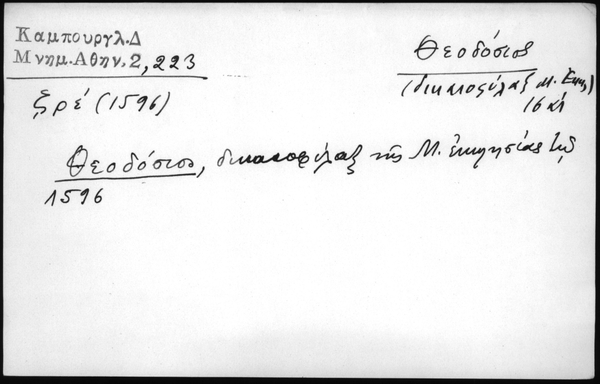 Καμπουργλ.Δ
Μνημ.Αθην.2,223
Θεοδόσιος
(δικαιοφύλαξ Μ. Εκκλ)
16 αι
ζρέ (1596)
Θεοδόσιος, δικαιοφύλαξ της Μ. ἐκκλησίας
1596